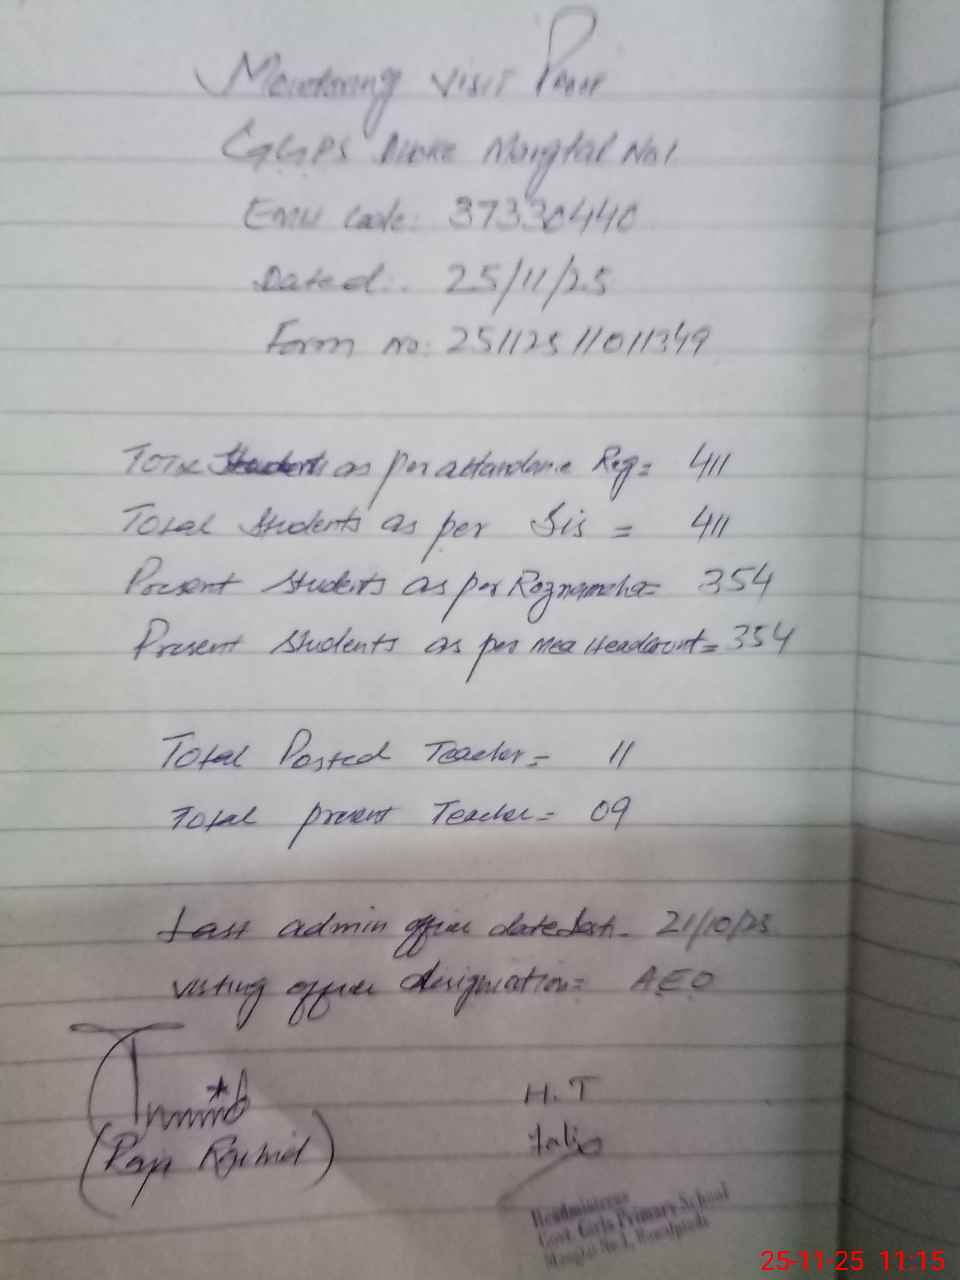 Monitoring Visit Proof
GGPS Mangtal No 1
EMIS Code: 37330440
Dated:. 25/11/25
Form no: 25112511011349
Total Students as per attandance Reg = 411
Total Students as per Sis = 411
Present Students as per Roznamcha= 354
Present Students as per mea Headcount= 354
Total Posted Teacher = 11
Total present Teacher = 09
Last admin officer date 21/10/25
visting officer designation = AEO
H.T
Headmistress
Govt. Girls Primary School
No.1, Rawalpindi
25-11-25 11:15